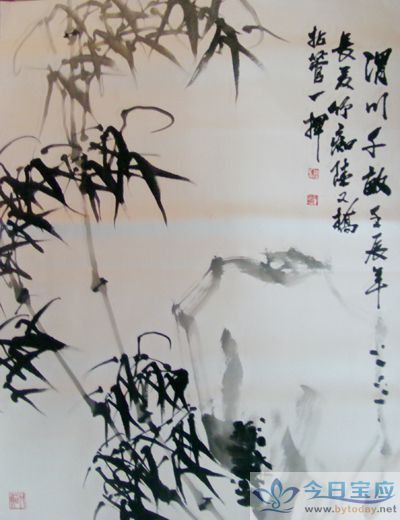 渭川千畝壬辰年
長夏竹痴陸又橋
拈管一揮
今日宝应
www.bytoday.net